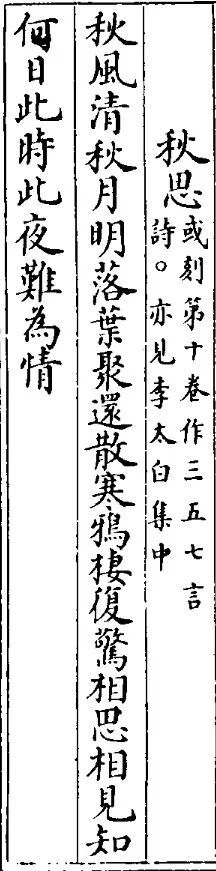 秋思或刻第十卷作三五七言
詩○亦見李太白集中
秋風清秋月明落葉聚還散寒鴉棲復驚相思相見知
何日此時此夜難為情